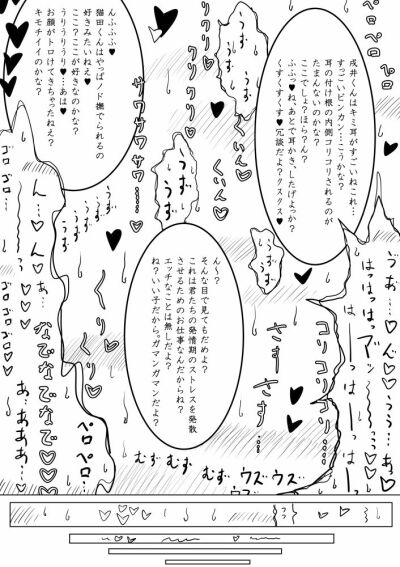 戌井くんはキミ耳がすごいねこれ…
すごいビンカン…こうかな？
耳の付け根の内側コリコリされるのが
たまんないのかな？
ここでしょ？ほら？ん？
ふふっ♥ね、あとで耳かき、したげよっか？
くすくすくす♥冗談だよ？クスクス♥
んふふふ♥
猫田くんはやっぱノド撫でられるの
好きみたいねえ♥
ここ？ここが好きなのかな？
うりうりうり♥…あは♥
お顔がトロけてきちゃったねえ？
キモチイイのかな？
ん～？
そんな目で見てもだめよ？
これは君たちの発情期のストレスを発散
させるためのお仕事なんだからね？
エッチなことは無しだよ？
ね？いい子だからっガマンガマンだよ？
ペロペロ
クリクリ
クリクリ♡
うずうず
くいん♡
くいん♡
サワサワサワ…
うずうず
うずうず
ゴロゴロ…
ん…
ん♡
くり♡
くり♡
さす
さす…
コリコリコリ…
はっはっはっ
ぁお…♡
ん♡
うう…
あ…
なでなでなで♡♡♡
ゴロゴロゴロ♡♡♡
あ…ああああ…
ペロペロ…
むず
むず
むず
ウズウズ
ウズウズ